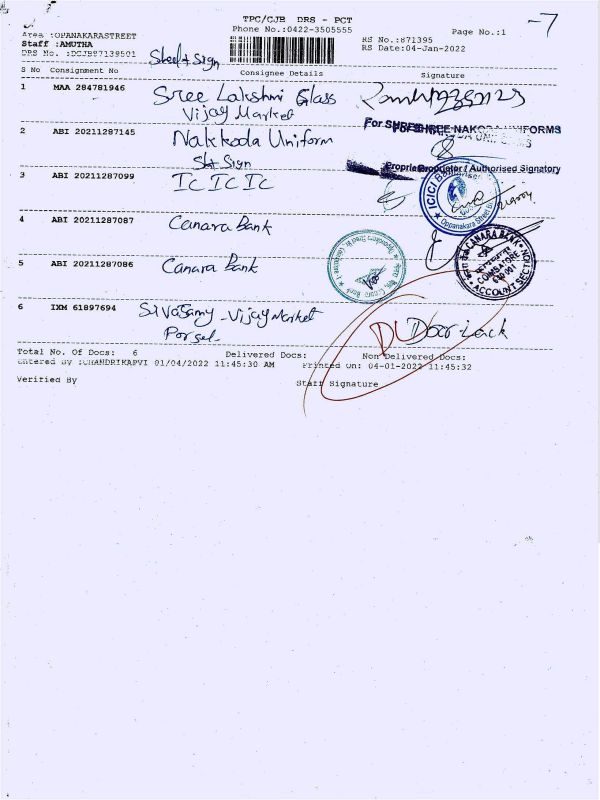 TPC/CJB DRS - PCT
Phone No.:0422-3505555
-7
Area :OPANAKARASTREET
Page No.:1
Staff :AMUTHA
RS No.:871395
RS Date:04-Jan-2022
Seal & Sign
S No Consignment No Consignee Details Signature
1 MAA 284781946 Sree Lakshmi Glass
Vijay Market
2 ABI 20211287145 Nakkoda Uniform
Sign
For SHREE NAKODA UNIFORMS
Proprietor / Authorised Signatory
3 ABI 20211287099 ICICIC
ICICI
Oppanakara Street
4 ABI 20211287087 Canara Bank
CANARA BANK
COIMBATORE
641 001
ACCOUNT SECTION
5 ABI 20211287086 Canara Bank
6 IXM 61897694 Sivasamy - Vijay Market
DL Door Lock
Total No. Of Docs: 6 Delivered Docs: Non Delivered Docs:
Entered By :CHANDRIKAPVI 01/04/2022 11:45:30 AM Printed On: 04-01-2022 11:45:32
Verified By Staff Signature